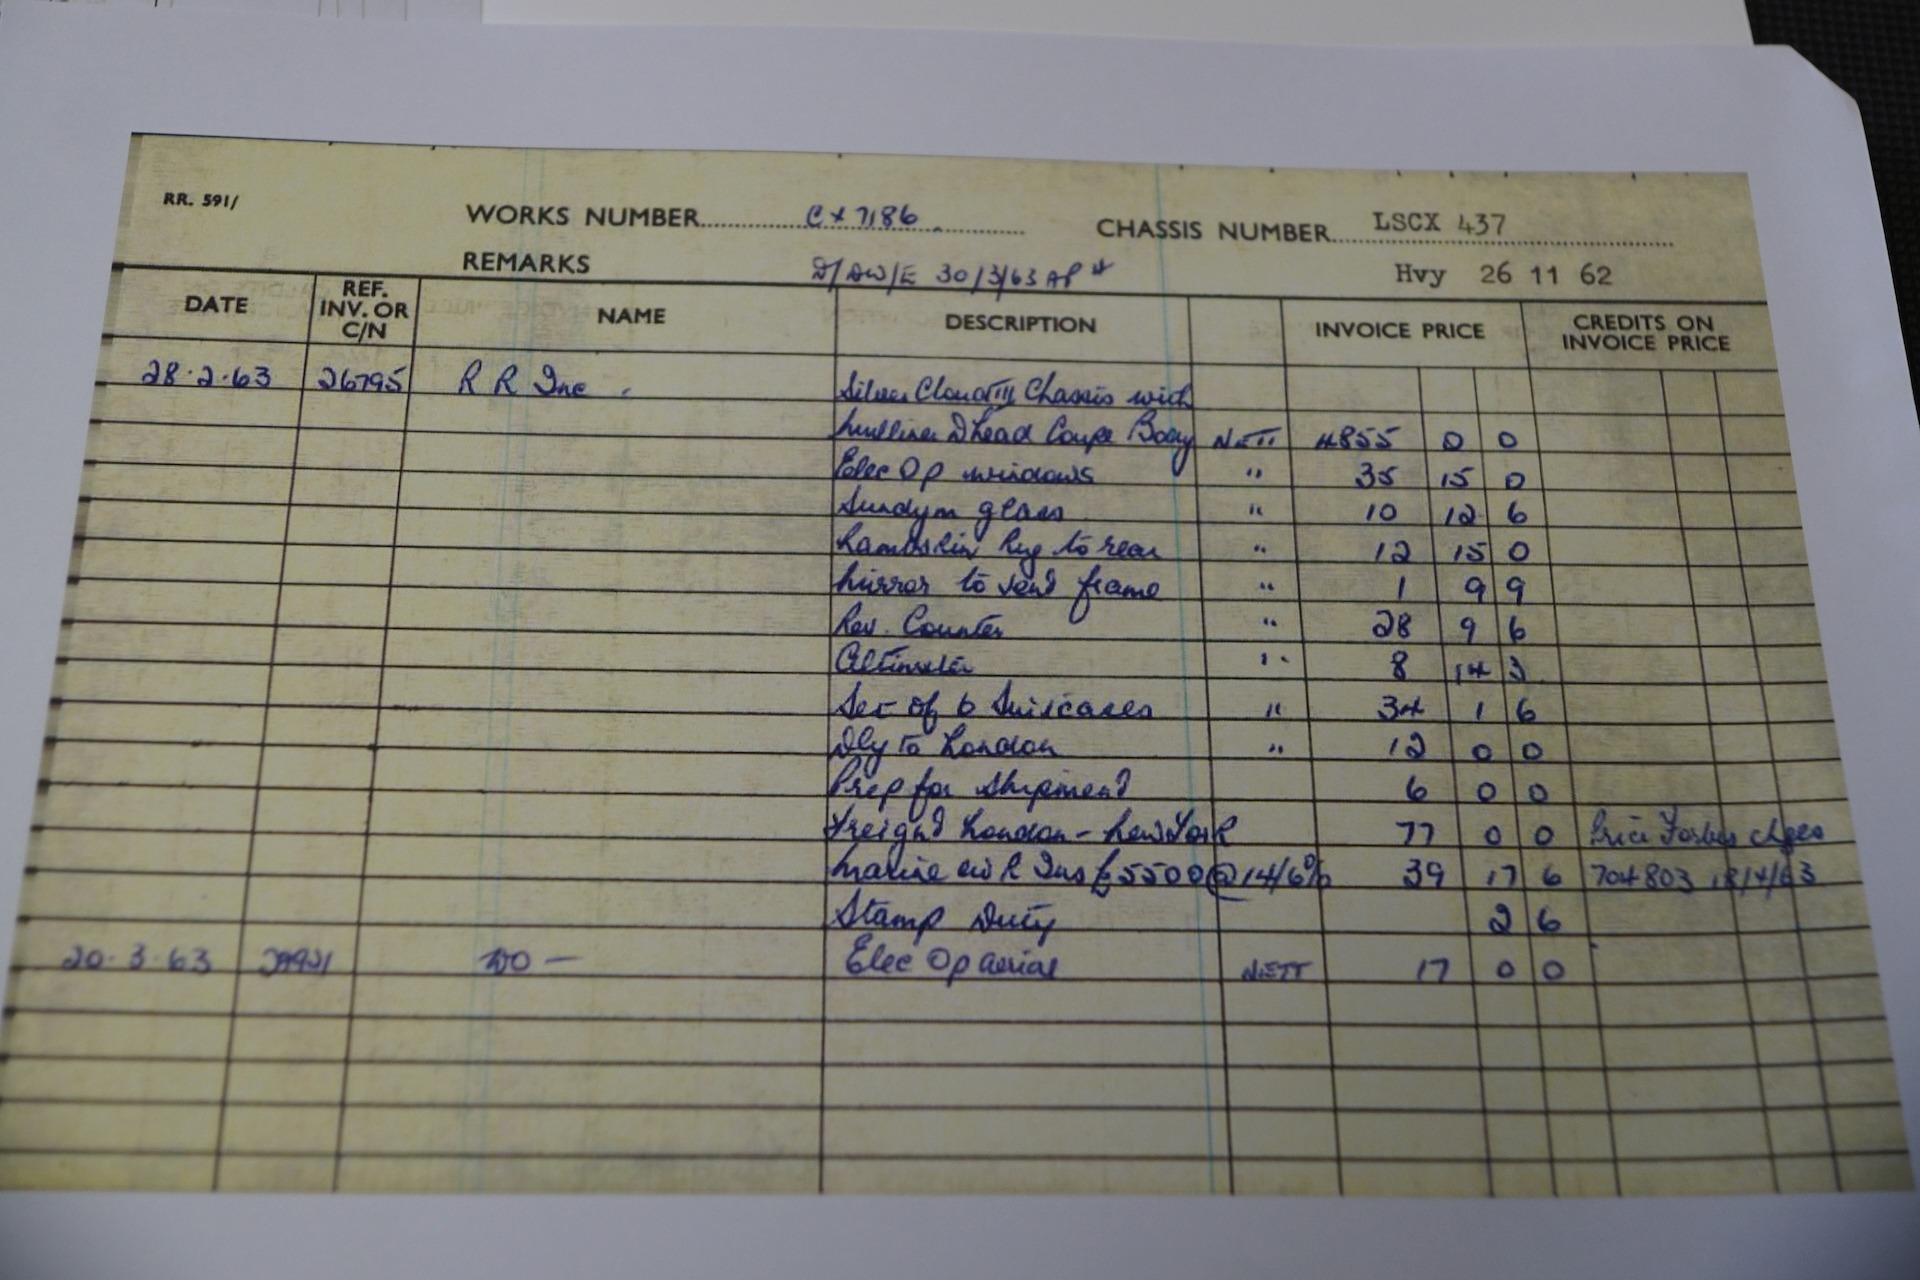 RR. 591/
WORKS NUMBER CX 7186 CHASSIS NUMBER LSCX 437
REMARKS D/DW/E 30/3/63 Hvy 26 11 62
DATE REF. INV. OR C/N NAME DESCRIPTION INVOICE PRICE CREDITS ON INVOICE PRICE
28.2.63 26795 R R Inc. Silver Cloud III Chassis with
Mulliner D Head Coupe Body NETT 4855 0 0
Elec Op windows " 35 15 0
Sundym glass " 10 12 6
Lambskin Rug to rear " 12 15 0
Mirror to vent frame " 1 9 9
Rev. Counter " 28 9 6
Altimeter " 8 14 3
Set of 6 Suitcases " 34 1 6
Dly to London " 12 0 0
Prep for Shipment 6 0 0
Freight London - New York 77 0 0 Price Forbes chges
Marine Ins £5500 @ 14/6% 39 17 6 704803 18/4/63
Stamp Duty 2 6
20.3.63 DO — Elec Op aerial NETT 17 0 0